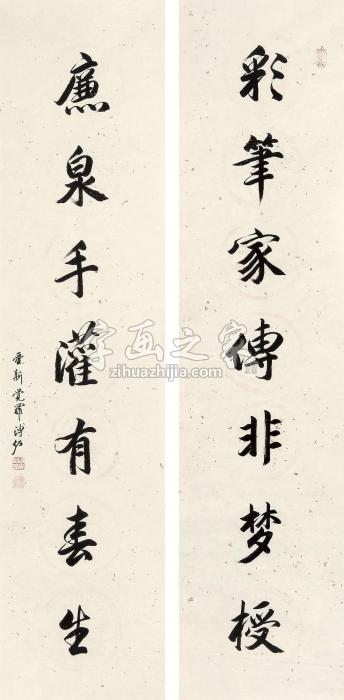 彩筆家傳非梦授
廉泉手灌有春生
爱新觉羅溥佐
字画之家
zihuazhijia.com